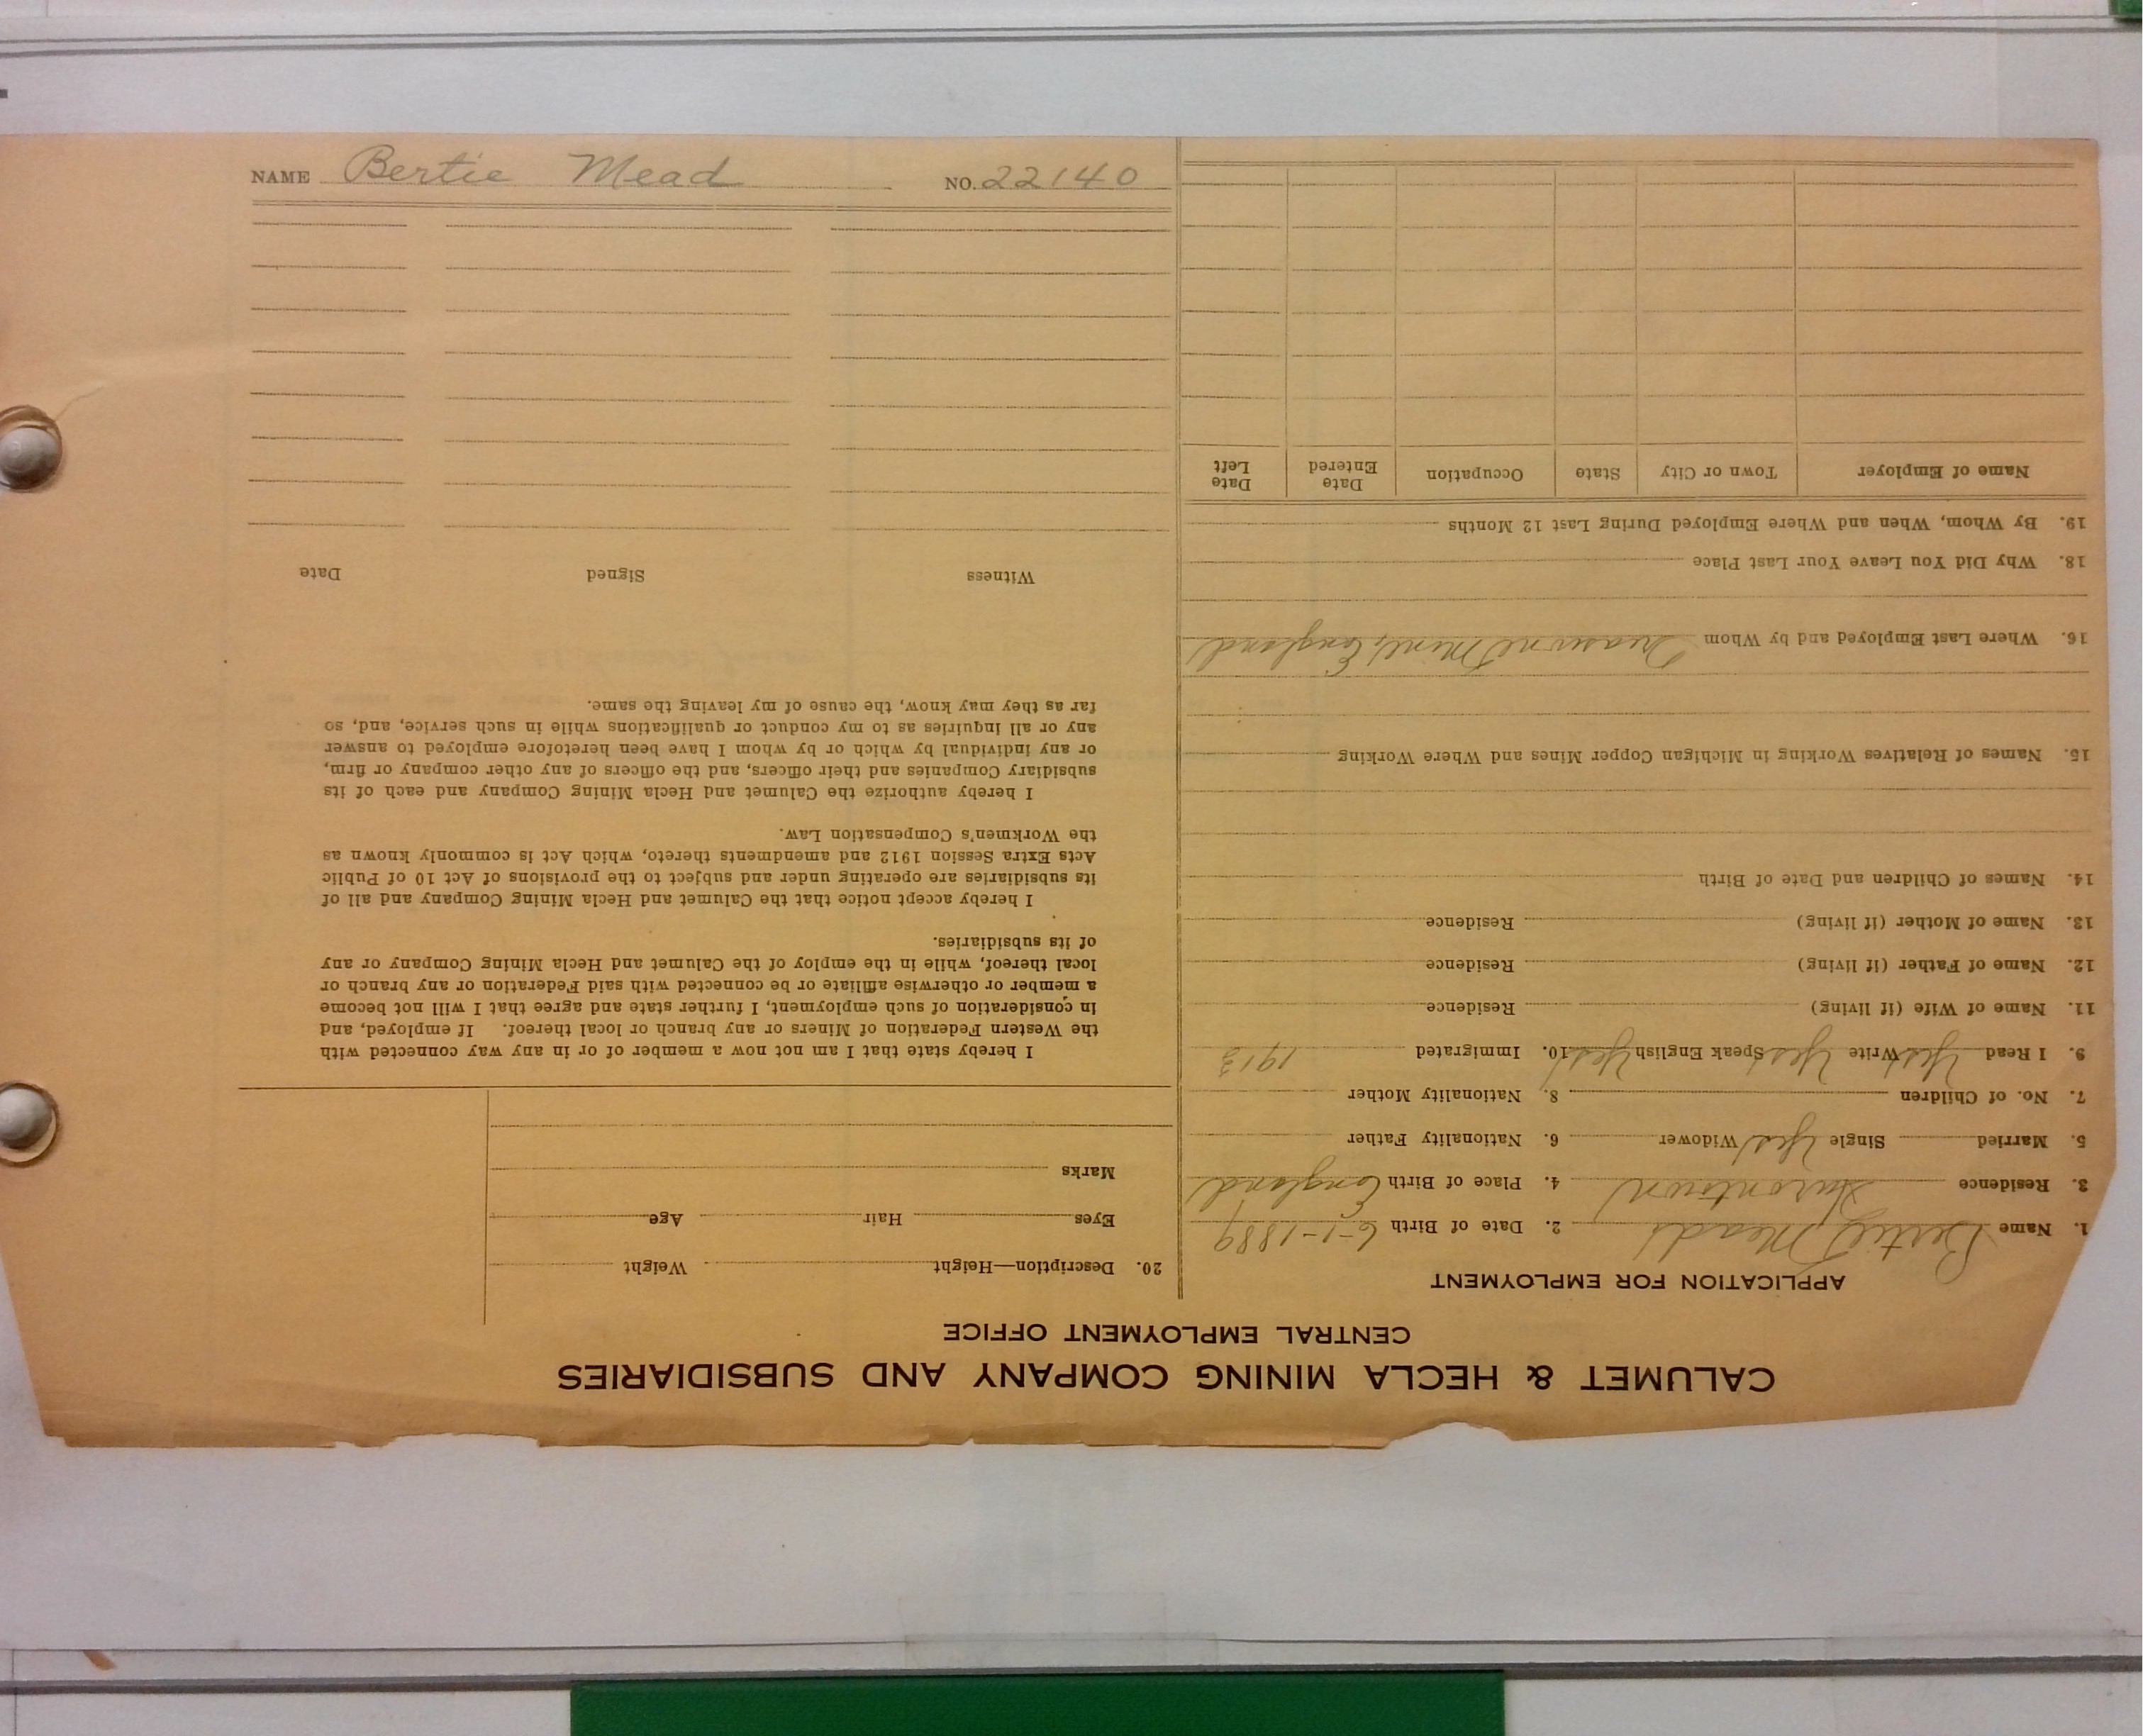 NAME Bertie Mead NO. 22140
CALUMET & HECLA MINING COMPANY AND SUBSIDIARIES
CENTRAL EMPLOYMENT OFFICE
APPLICATION FOR EMPLOYMENT
1. Name Bertie Mead 2. Date of Birth 6-1-1889
3. Residence Hurontown 4. Place of Birth England
5. Married Single Yes Widower 6. Nationality Father
7. No. of Children 8. Nationality Mother
9. I Read Yes Write Yes Speak English Yes 10. Immigrated 1913
11. Name of Wife (if living) Residence
12. Name of Father (if living) Residence
13. Name of Mother (if living) Residence
14. Names of Children and Date of Birth
15. Names of Relatives Working in Michigan Copper Mines and Where Working
16. Where Last Employed and by Whom Mine, England
18. Why Did You Leave Your Last Place
19. By Whom, When and Where Employed During Last 12 Months
Name of Employer Town or City State Occupation Date Entered Date Left
20. Description—Height Weight
Eyes Hair Age
Marks
I hereby state that I am not now a member of or in any way connected with
the Western Federation of Miners or any branch or local thereof. If employed, and
in consideration of such employment, I further state and agree that I will not become
a member or otherwise affiliate or be connected with said Federation or any branch or
local thereof, while in the employ of the Calumet and Hecla Mining Company or any
of its subsidiaries.
I hereby accept notice that the Calumet and Hecla Mining Company and all of
its subsidiaries are operating under and subject to the provisions of Act 10 of Public
Acts Extra Session 1912 and amendments thereto, which Act is commonly known as
the Workmen's Compensation Law.
I hereby authorize the Calumet and Hecla Mining Company and each of its
subsidiary Companies and their officers, and the officers of any other company or firm,
or any individual by which or by whom I have been heretofore employed to answer
any or all inquiries as to my conduct or qualifications while in such service, and, so
far as they may know, the cause of my leaving the same.
Witness Signed Date